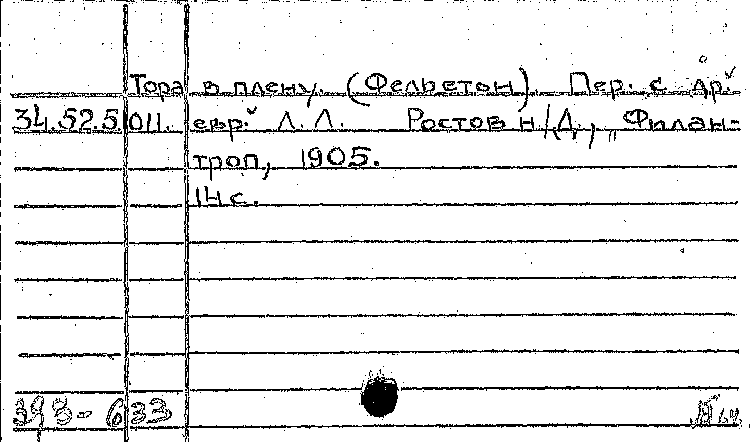 Тора в плену. (Фельетон). Пер. с др.
34.52.5.011. евр. Л. Л. Ростов н/Д., „Филан-
троп, 1905.
14 с.
393-633